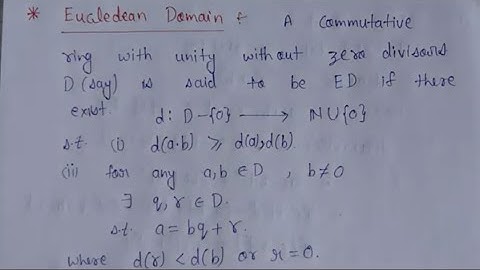 * Eucledean Domain : A Commutative
ring with unity without zero divisors
D (say) is said to be ED if there
exist. d: D-{0} → NU{0}
s.t. (i) d(a·b) ⩾ d(a),d(b).
(ii) for any a,b ∈ D , b≠0
∃ q,r ∈ D.
s.t. a = bq + r.
where d(r) < d(b) or r=0.